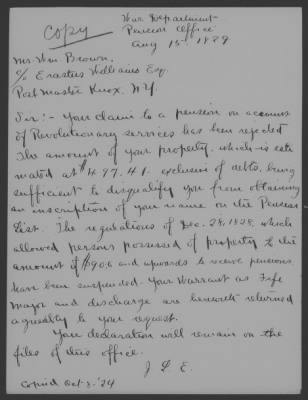 Copy
War Department
Pension Office
Aug 15th 1829
Mr. Wm. Brown,
c/o Erastus Williams Esq.
Post Master Knox, N.Y.
Sir:- Your claim to a pension on account
of Revolutionary services has been rejected
The amount of your property, which is esti
mated at $497.41. exclusive of debts, being
sufficient to disqualify you from obtaining
an inscription of your name on the Pension
List. The regulations of Dec. 28, 1828, which
allowed persons possessed of property to the
amount of $900 and upwards to receive pensions,
have been suspended. Your Warrant as Fife
Major and discharge are herewith returned
agreeably to your request.
Your declaration will remain on the
files of this office.
J L E.
Copied Oct 2-'24